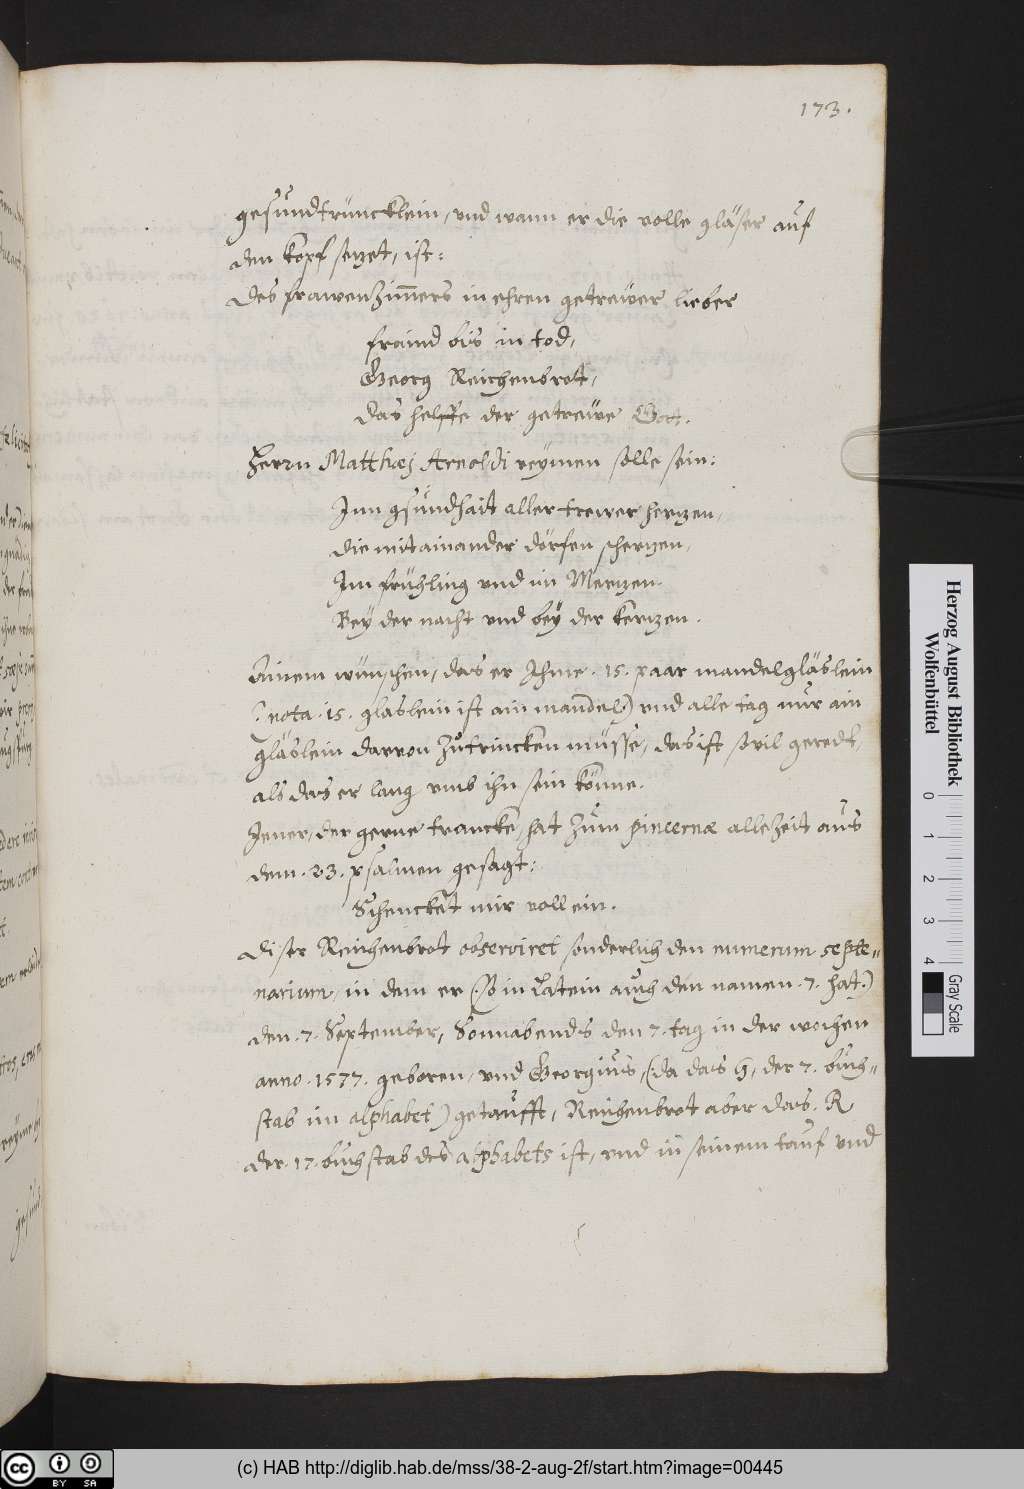 173.
gesundtrüncklein, und wann er die volle gläser auf
den kopf sezet, ist:
des frawenzim̄ers in ehren getrewer lieber
fraind bis in tod,
Georg Reichenbrot,
das helffe der getrewe Gott.
Herrn Matthæj Arnoldi reymen solle sein:
Inn gsundhait aller trewer herzen,
die mit ainander dörfen scherzen,
Im frühling und im Merzen.
Bey der nacht und bey der kerzen.
Ainem wünschen, das er Ihme .15. paar mandelgläslein
(: nota .15. glaslein ist ain mandel:) und alle tag nur ain
gläslein darvon zutrincken müsse, das ist sovil geredt,
als das er lang umb ihn sein könne.
Jener, der gerne trancke, hat zum pincernæ allezeit aus
dem .23. psalmen gesagt:
Schencket mir voll ein.
Diser Reichenbrot observiret sonderlich den numerum septe=
narium, in dem er (: so in Latein auch den namen .7. hat:)
den .7. September, Sonnabends den 7. tag in der wochen
anno .1577. geboren, und Georgius, (: da das G, der 7. buch=
stab im alphabet) getaufft, Reichenbrot aber das. R
der .17. buchstab des alphabets ist, und in seinem tauf und
Herzog August Bibliothek
Wolfenbüttel
0 1 2 3 4
Gray Scale
cc BY SA
(c) HAB http://diglib.hab.de/mss/38-2-aug-2f/start.htm?image=00445